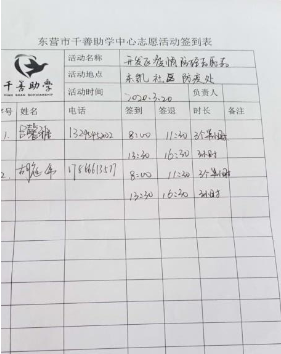 东营市千善助学中心志愿活动签到表
千善助学
活动名称 开发区疫情防控志愿服务
活动地点 社区
活动时间 2020.3.20 负责人
序号 姓名 电话 签到 签退 时长 备注
1. 8:00 11:30 3个半小时
13:30 16:30 3小时
2 8:00 11:30 3个半小时
13:30 16:30 3小时